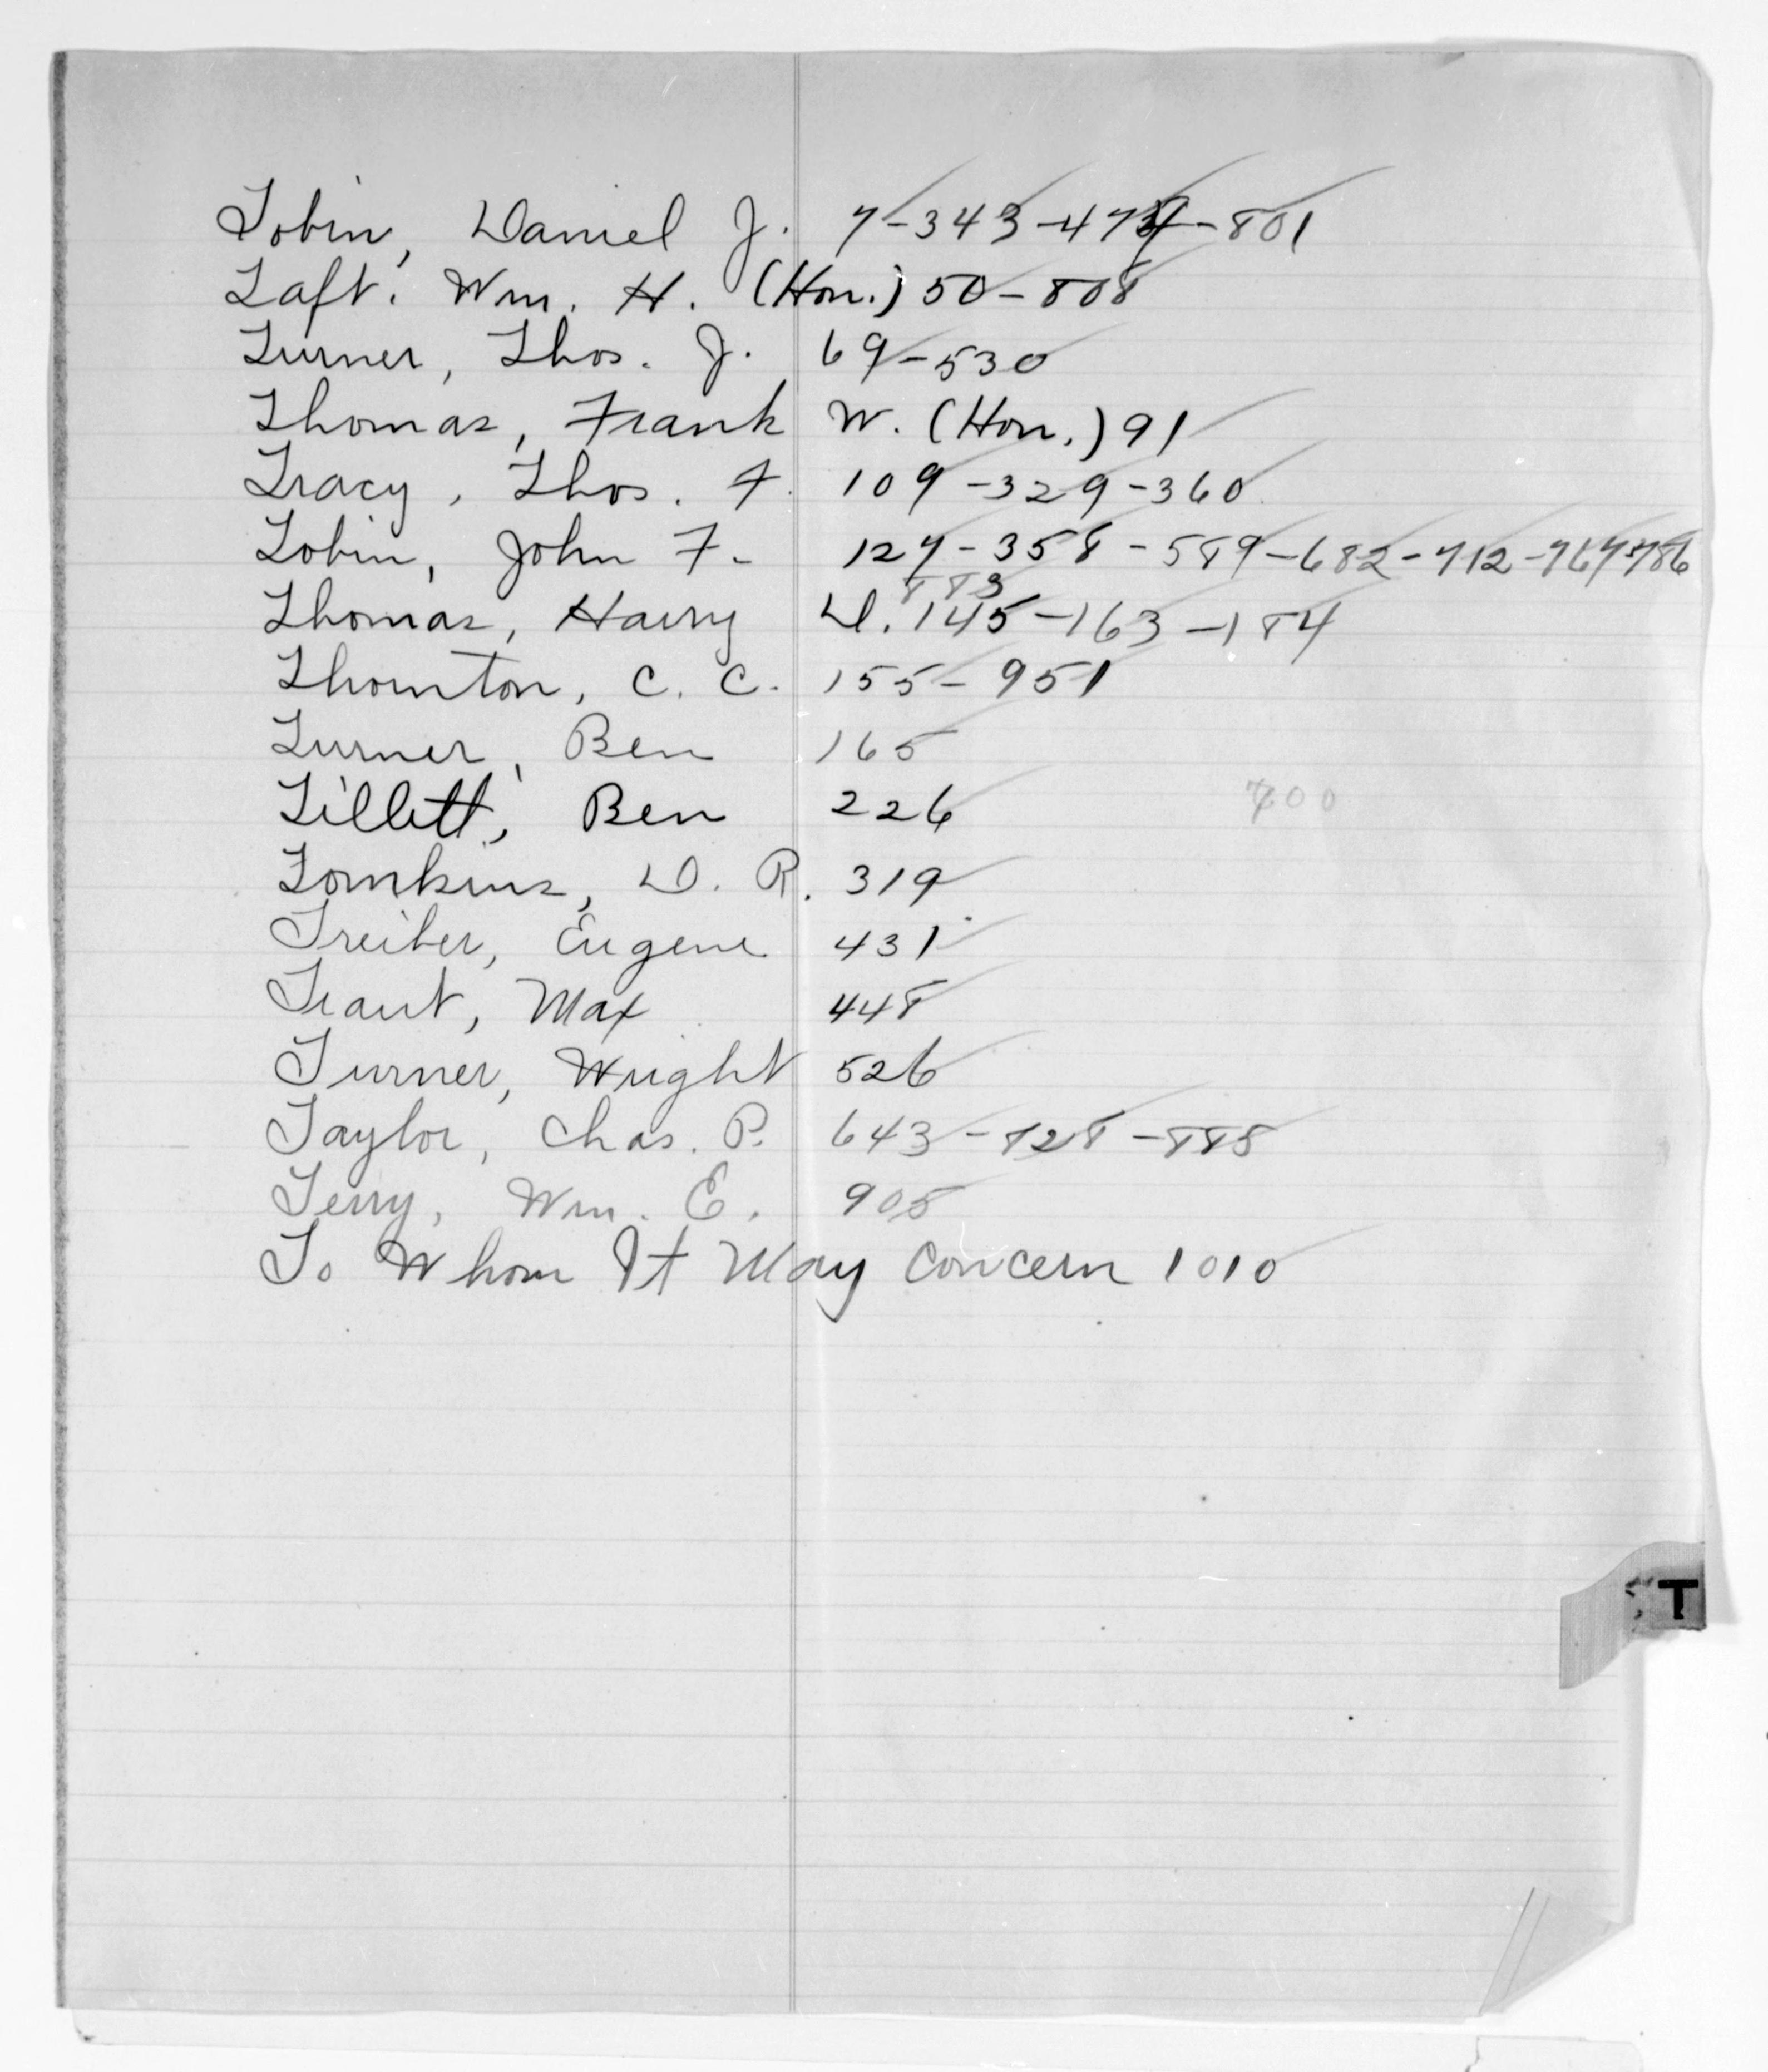 Tobin, Daniel J. 7-343-474-801
Taft. Wm. H. (Hon.) 50-808
Turner, Thos. J. 69-530
Thomas, Frank W. (Hon.) 91
Tracy, Thos. F. 109-329-360
Tobin, John F. 127-358-589-682-712-767-786
883
Thomas, Harry D. 145-163-184
Thornton, C. C. 155-951
Turner, Ben 165
Tillett, Ben 226
700
Tomkins, D. R. 319
Treiber, Eugene 431
Traut, Max 448
Turner, Wright 526
Taylor, Chas. P. 643-728-885
Terry, Wm. E. 905
To Whom It May Concern 1010
T